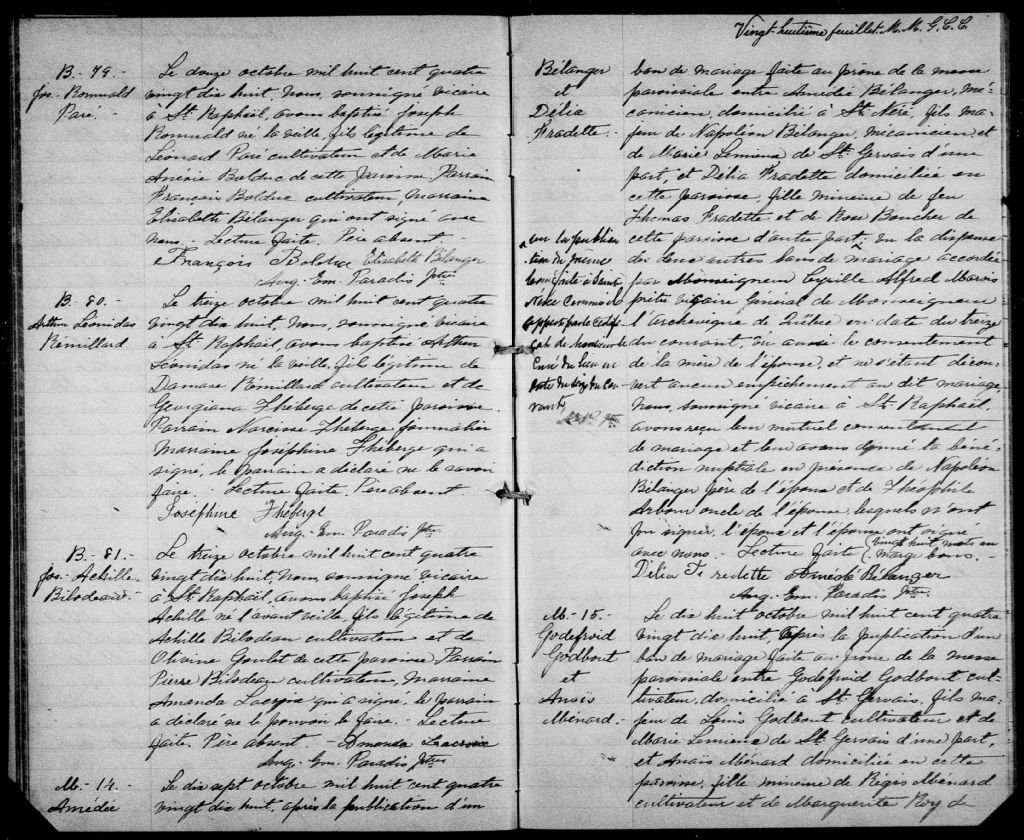 B.- 79.-
Jos. Romuald
Paré.
Le douze octobre mil huit cent quatre
vingt dix huit, Nous, soussigné vicaire
à St. Raphaël, avons baptisé Joseph
Romuald né la veille, fils légitime de
Léonard Paré cultivateur et de Marie
Bolduc de cette paroisse. Parrain
François Bolduc cultivateur, marraine
Elisabeth Bélanger qui ont signé avec
nous. - Lecture faite. Père absent -
François Bolduc Elisabeth Bélanger
Aug. Em. Paradis Ptre
B.- 80.-
Arthur Leonidas
Rémillard
Le treize octobre mil huit cent quatre
vingt dix huit, Nous, soussigné vicaire
à St. Raphaël, avons baptisé Arthur
Léonidas né la veille, fils légitime de
Damase Rémillard cultivateur et de
Georgiana Théberge de cette paroisse.
Parrain Narcisse Théberge journalier
Marraine Joséphine Théberge qui a
signé, le parrain a déclaré ne le savoir
faire. - Lecture faite. Père absent
Joséphine Théberge
Aug. Em. Paradis Ptre
B.- 81.-
Jos.- Achille
Bilodeau.-
Le treize octobre mil huit cent quatre
vingt dix huit, Nous, soussigné vicaire
à St. Raphaël, avons baptisé Joseph
Achille né l'avant veille, fils légitime de
Achille Bilodeau cultivateur et de
Olivine Goulet de cette paroisse. Parrain
Pierre Bilodeau cultivateur, Marraine
Amanda Lacroix qui a signé, le parrain
a déclaré ne le pouvoir le faire. - Lecture
faite. Père absent. - Amanda Lacroix
Aug. Em. Paradis Ptre
M.- 14.-
Amédée
Le dix sept octobre mil huit cent quatre
vingt dix huit, après la publication d'un
Vingt-huitième feuillet. M. M. G. C. C.
Bélanger
et
Délia
Fradette.-
ban de mariage faite au prône de la messe
paroissiale entre Amédée Bélanger, mé-
canicien, domicilié à St. Néré, fils ma-
jeur de Napoléon Bélanger, mécanicien et
de Marie Lemieux de St. Gervais d'une
part, et Délia Fradette domiciliée en
cette paroisse, fille mineure de feu
Thomas Fradette et de Rose Boucher de
cette paroisse d'autre part, vu la dispense
des deux autres bans de mariage accordée
par Monseigneur Cyrille Alfred Marois
prêtre vicaire Général de Monseigneur
l'archevêque de Québec en date du treize
du courant, vu aussi le consentement
de la mère de l'épouse, et ne s'étant décou-
vert aucun empêchement au dit mariage,
Nous, soussigné vicaire à St. Raphaël,
avons reçu leur mutuel consentement
de mariage et leur avons donné la béné-
diction nuptiale en présence de Napoléon
Bélanger père de l'époux et de Théophile
Arbour oncle de l'épouse, lesquels n'ont
pu signer, l'époux et l'épouse ont signé
avec nous. - Lecture faite (vingt huit mots en
marge bons. -
Délia Fredette Amédé Bélanger
Aug. Em. Paradis Ptre
vu la publica
tion du
faite à Saint
Néré comme il
appert par le certifi
cat de Monsieur le
Curé du lieu en
date du seize du cou-
rant,
M.- 15.-
Godefroid
Godbout
et
Anaïs
Ménard.-
Le dix huit octobre mil huit cent quatre
vingt dix huit, après la publication d'un
ban de mariage faite au prône de la messe
paroissiale entre Godefroid Godbout cul-
tivateur, domicilié à St. Gervais, fils ma-
jeur de Louis Godbout cultivateur et de
Marie Lemieux de St. Gervais d'une part,
et Anaïs Ménard domiciliée en cette
paroisse, fille mineure de Régis Ménard
cultivateur et de Marguerite Roy de